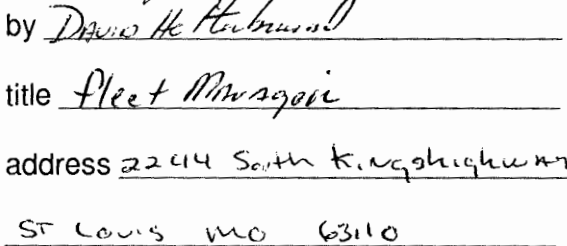 by David
title fleet Manager
address 2244 South Kingshighway
ST Louis MO 63110